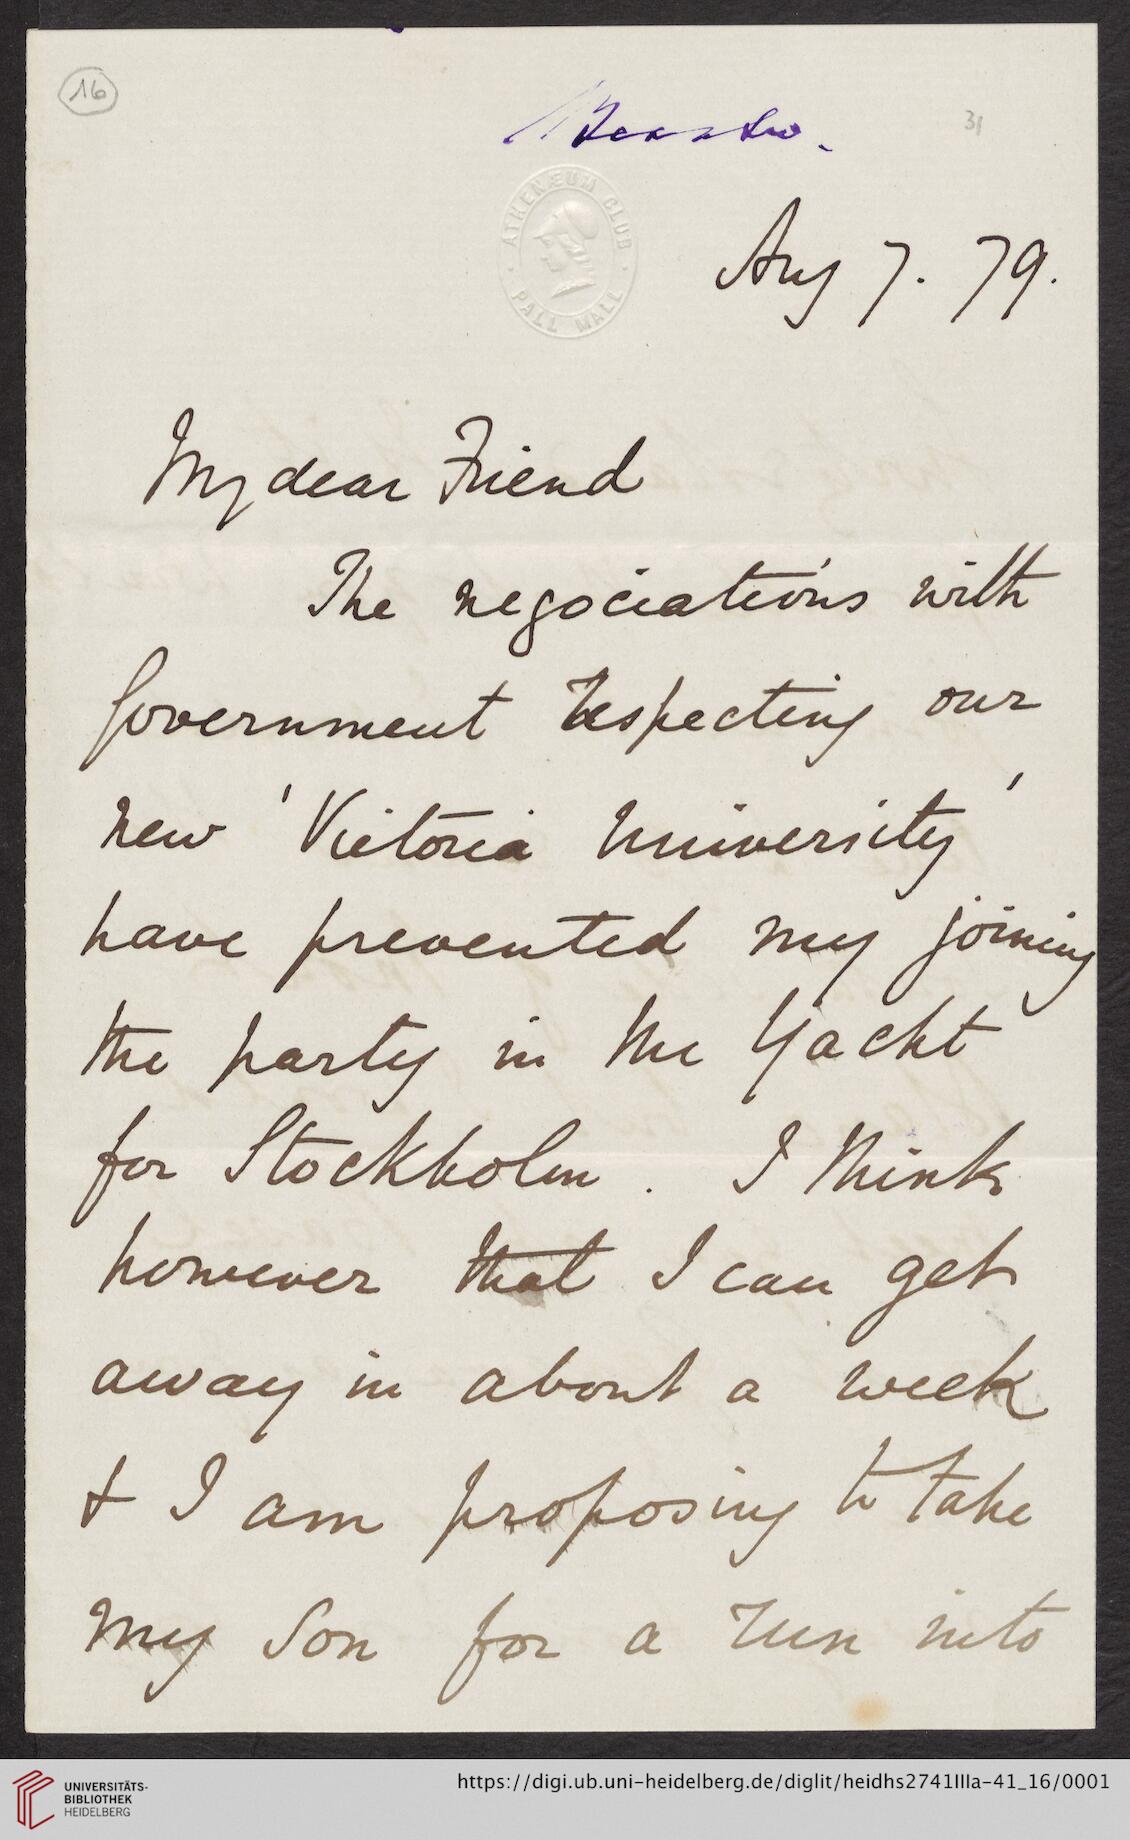 16
31
ATHENÆUM CLUB
PALL MALL
Aug 7. 79.
My dear Friend
The negociations with
Government respecting our
new 'Victoria University'
have prevented my joining
the party in the Yacht
for Stockholm. I think
however that I can get
away in about a week
& I am proposing to take
my Son for a run into
UNIVERSITÄTS-
BIBLIOTHEK
HEIDELBERG
https://digi.ub.uni-heidelberg.de/diglit/heidhs2741IIIa-41_16/0001